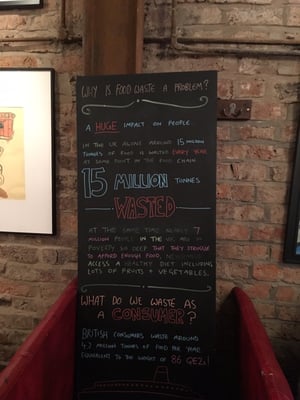 WHY IS FOOD WASTE A PROBLEM?
A HUGE IMPACT ON PEOPLE
IN THE UK ALONE AROUND 15 MILLION
TONNES OF FOOD IS WASTED EVERY YEAR
AT SOME POINT IN THE FOOD CHAIN
15 MILLION TONNES
WASTED
AT THE SAME TIME NEARLY 7
MILLION PEOPLE IN THE UK ARE IN
POVERTY SO DEEP THAT THEY STRUGGLE
TO AFFORD ENOUGH FOOD,
ACCESS A HEALTHY DIET INCLUDING
LOTS OF FRUITS + VEGETABLES.
WHAT DO WE WASTE AS
A CONSUMER?
BRITISH CONSUMERS WASTE AROUND
4.2 MILLION TONNES OF FOOD PER YEAR
EQUIVALENT TO THE WEIGHT OF 86 QE2s!